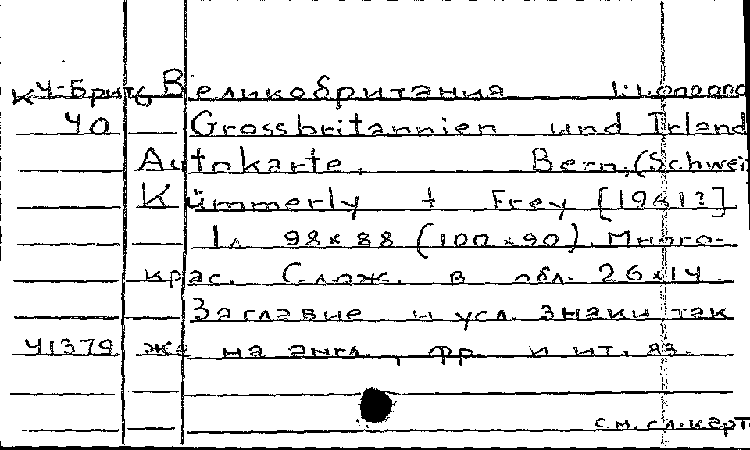 К4-Брит Великобритания 1:1.000000
40 Grossbritannien und Irland
Autokarte. Bern, (Schwei
Kümmerly + Frey [1961?]
1л 98x88 (100x90). Много-
крас. Слож. в обл. 26x14
Заглавие и усл. знаки так
41379 же на англ., фр. и ит. яз.
см. сл. карт